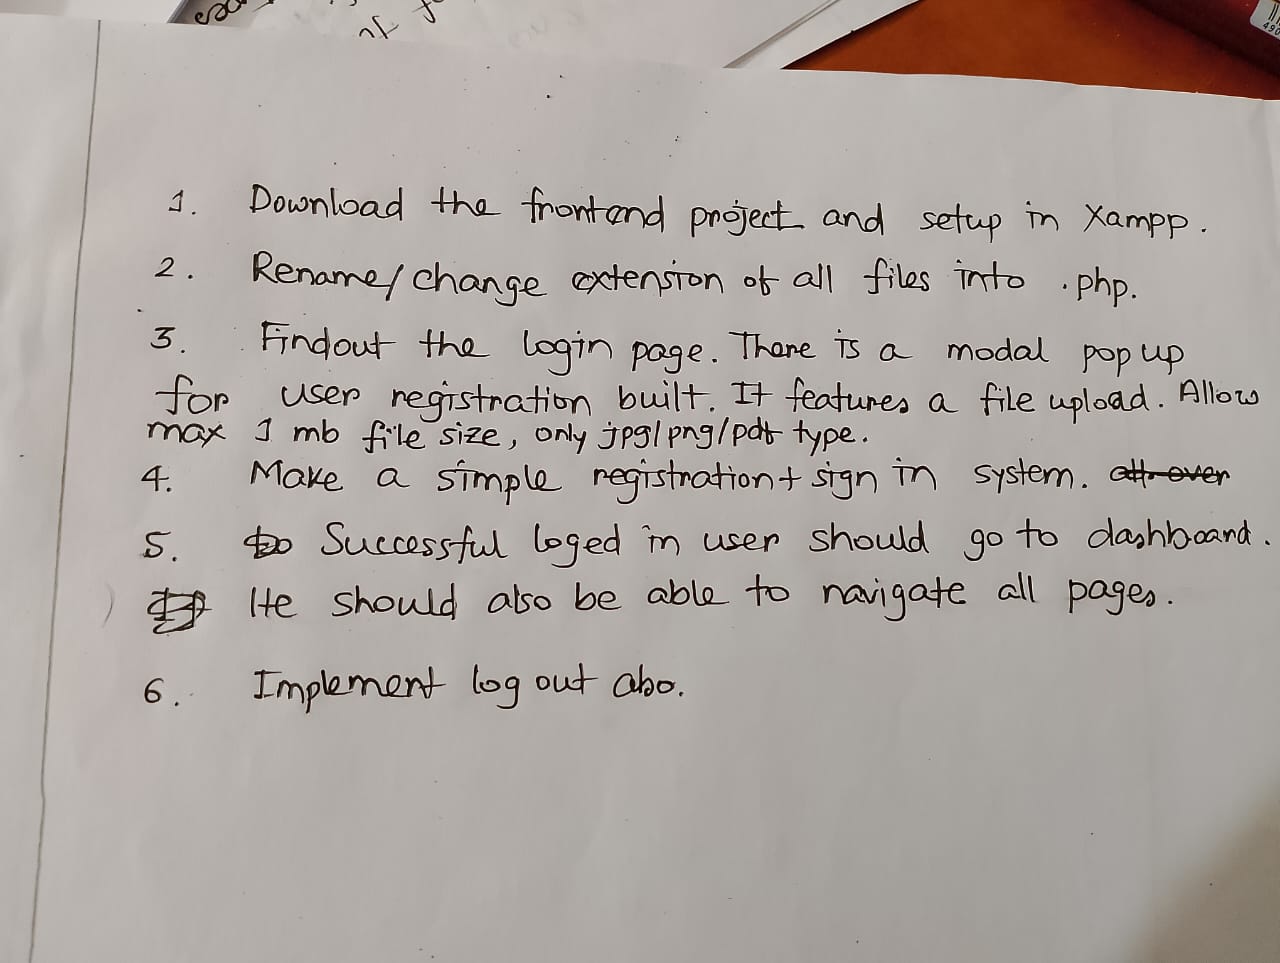 1. Download the frontend project and setup in Xampp.
2. Rename/change extension of all files into .php.
3. Findout the login page. There is a modal pop up
for user registration built. It features a file upload. Allow
max 1 mb file size, only jpg/png/pdf type.
4. Make a simple registration + sign in system. all over
5. to Successful loged in user should go to dashboard.
He should also be able to navigate all pages.
6. Implement log out also.